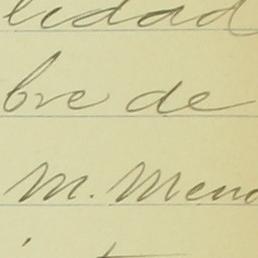 lidad
bre de
M. Men